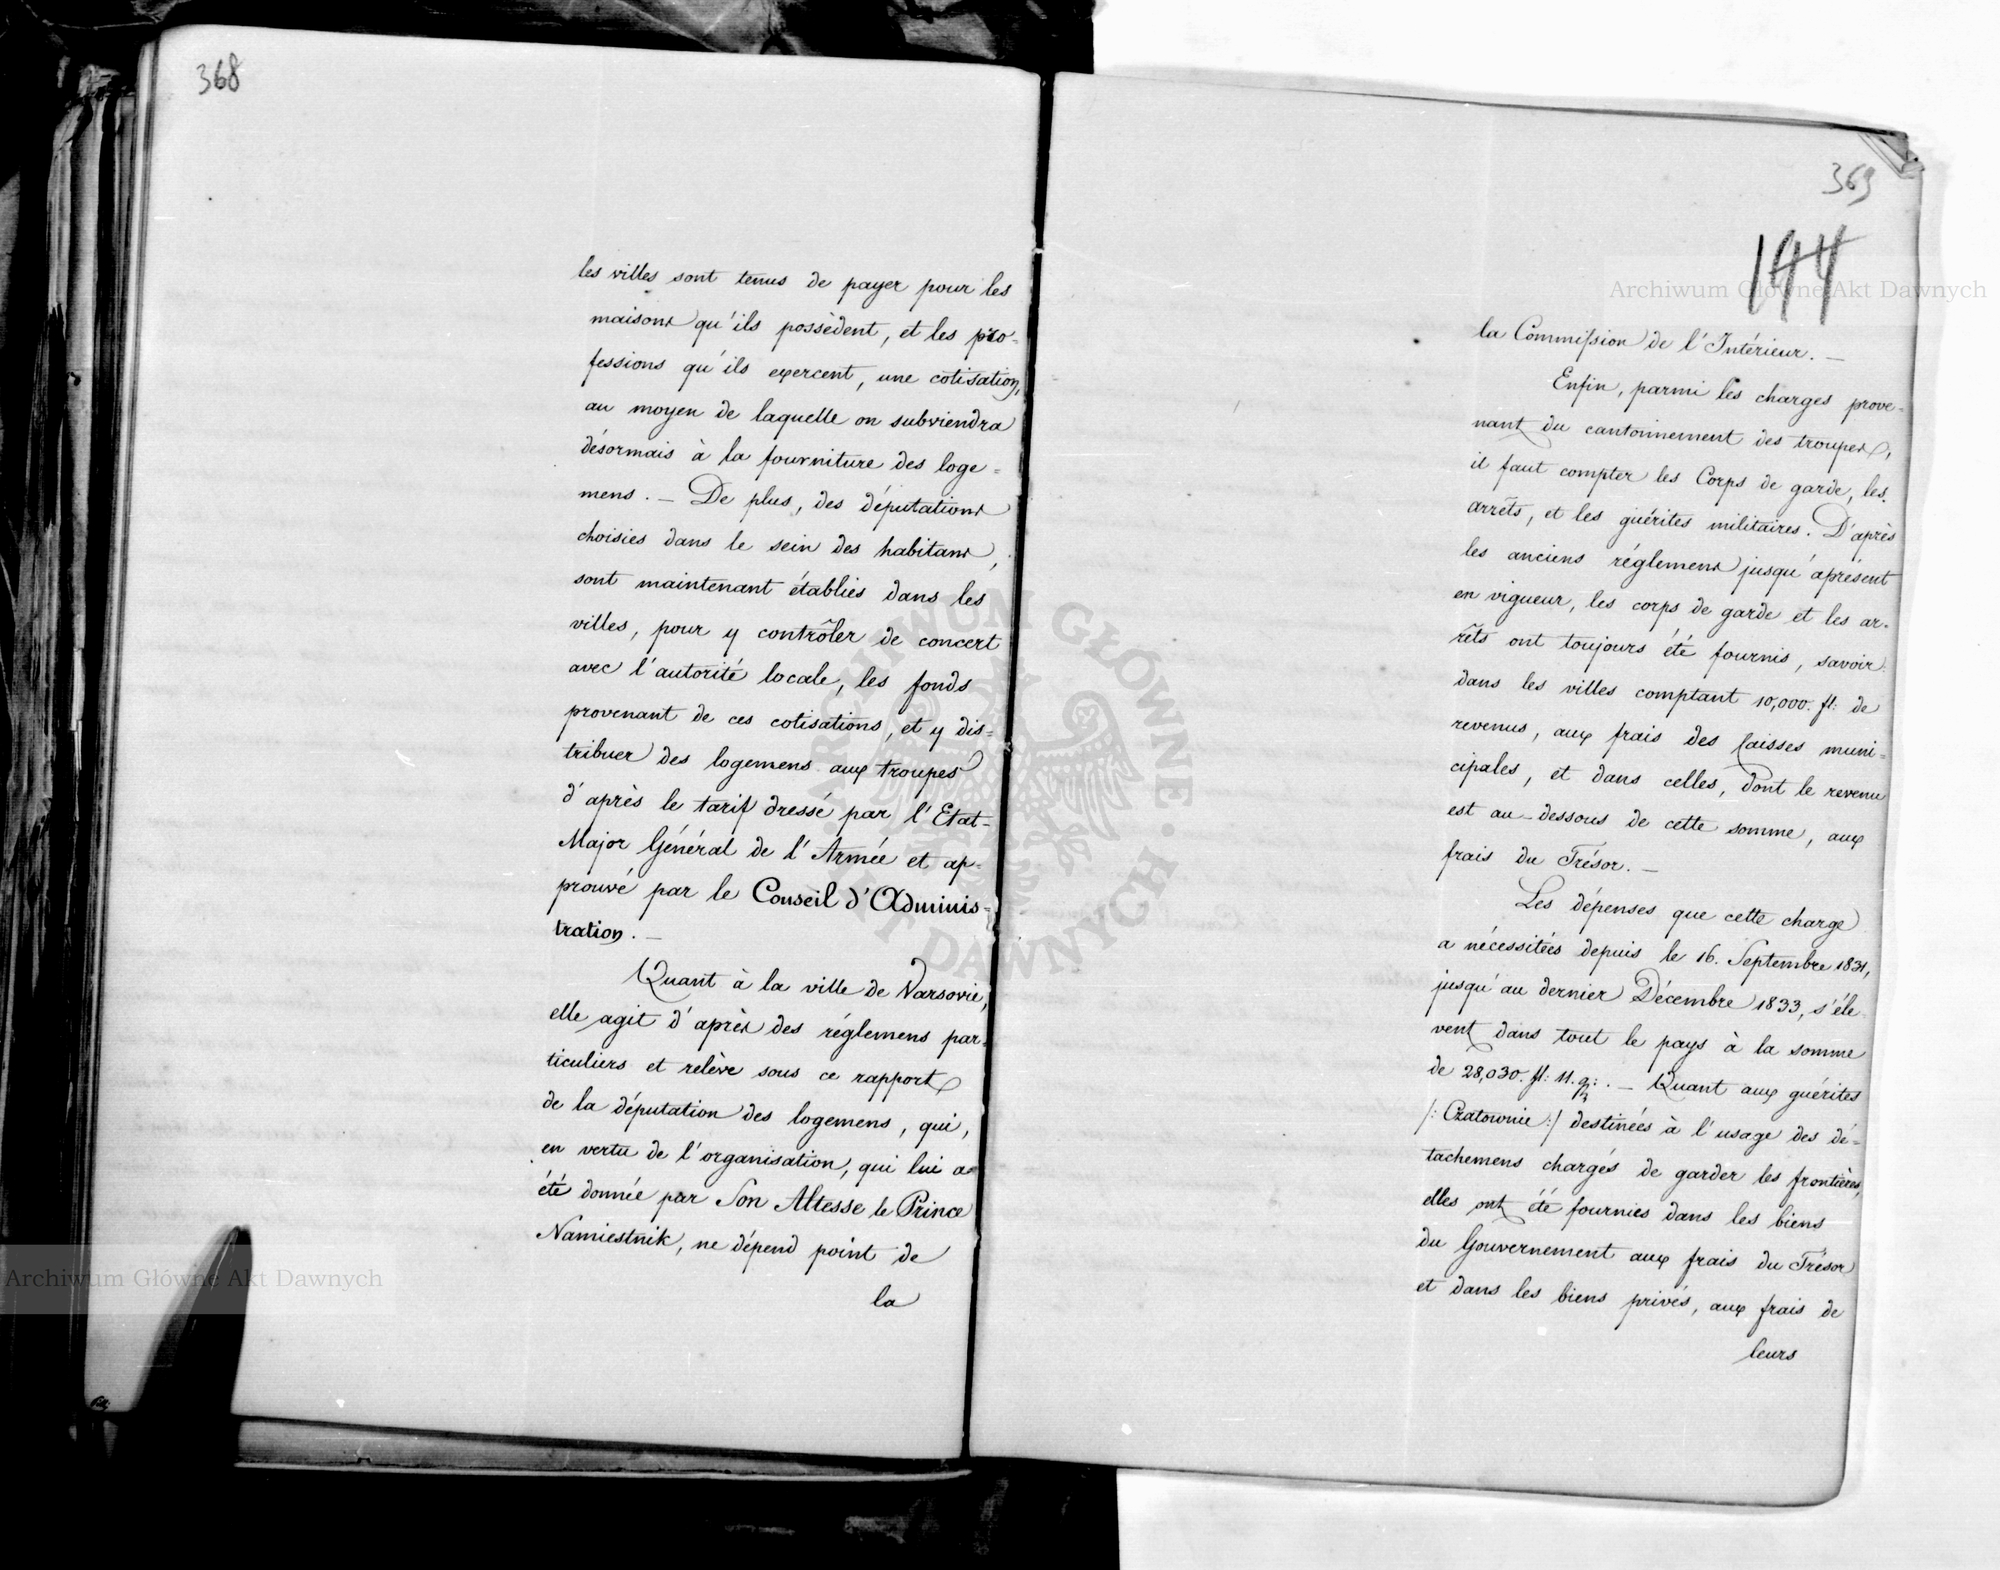 368
les villes sont tenus de payer pour les
maisons qu'ils possèdent, et les pro=
fessions qu'ils exercent, une cotisation,
au moyen de laquelle on subviendra
désormais à la fourniture des loge=
mens. — De plus, des députations
choisies dans le sein des habitans,
sont maintenant établies dans les
villes, pour y contrôler de concert
avec l'autorité locale, les fonds
provenant de ces cotisations, et y dis=
tribuer des logemens aux troupes
d'après le tarif dressé par l'Etat-
Major Général de l'Armée et ap=
prouvé par le Conseil d'Adminis=
tration. —
Quant à la ville de Varsovie,
elle agit d'après des réglemens par=
ticuliers et relève sous ce rapport
de la députation des logemens, qui,
en vertu de l'organisation, qui lui a
été donnée par Son Altesse le Prince
Namiestnik, ne dépend point de
la
369
144
la Commission de l'Intérieur. —
Enfin, parmi les charges prove=
nant du cantonnement des troupes,
il faut compter les Corps de garde, les
arrêts, et les guérites militaires. D'après
les anciens réglemens jusqu'àprésent
en vigueur, les corps de garde et les ar=
rêts ont toujours été fournis, savoir:
dans les villes comptant 10,000. fl: de
revenus, aux frais des Caisses muni=
cipales, et dans celles, dont le revenu
est au-dessous de cette somme, aux
frais du Trésor. —
Les dépenses que cette charge
a nécessitées depuis le 16. Septembre 1831,
jusqu'au dernier Décembre 1833, s'élè=
vent dans tout le pays à la somme
de 28,030. fl: 11. g: . — Quant aux guérites
/: Czatownie :/ destinées à l'usage des dé=
tachemens chargés de garder les frontières,
elles ont été fournies dans les biens
du Gouvernement aux frais du Trésor
et dans les biens privés, aux frais de
leurs
Archiwum Główne Akt Dawnych
Archiwum Główne Akt Dawnych
ARCHIWUM GŁÓWNE · AKT DAWNYCH ·